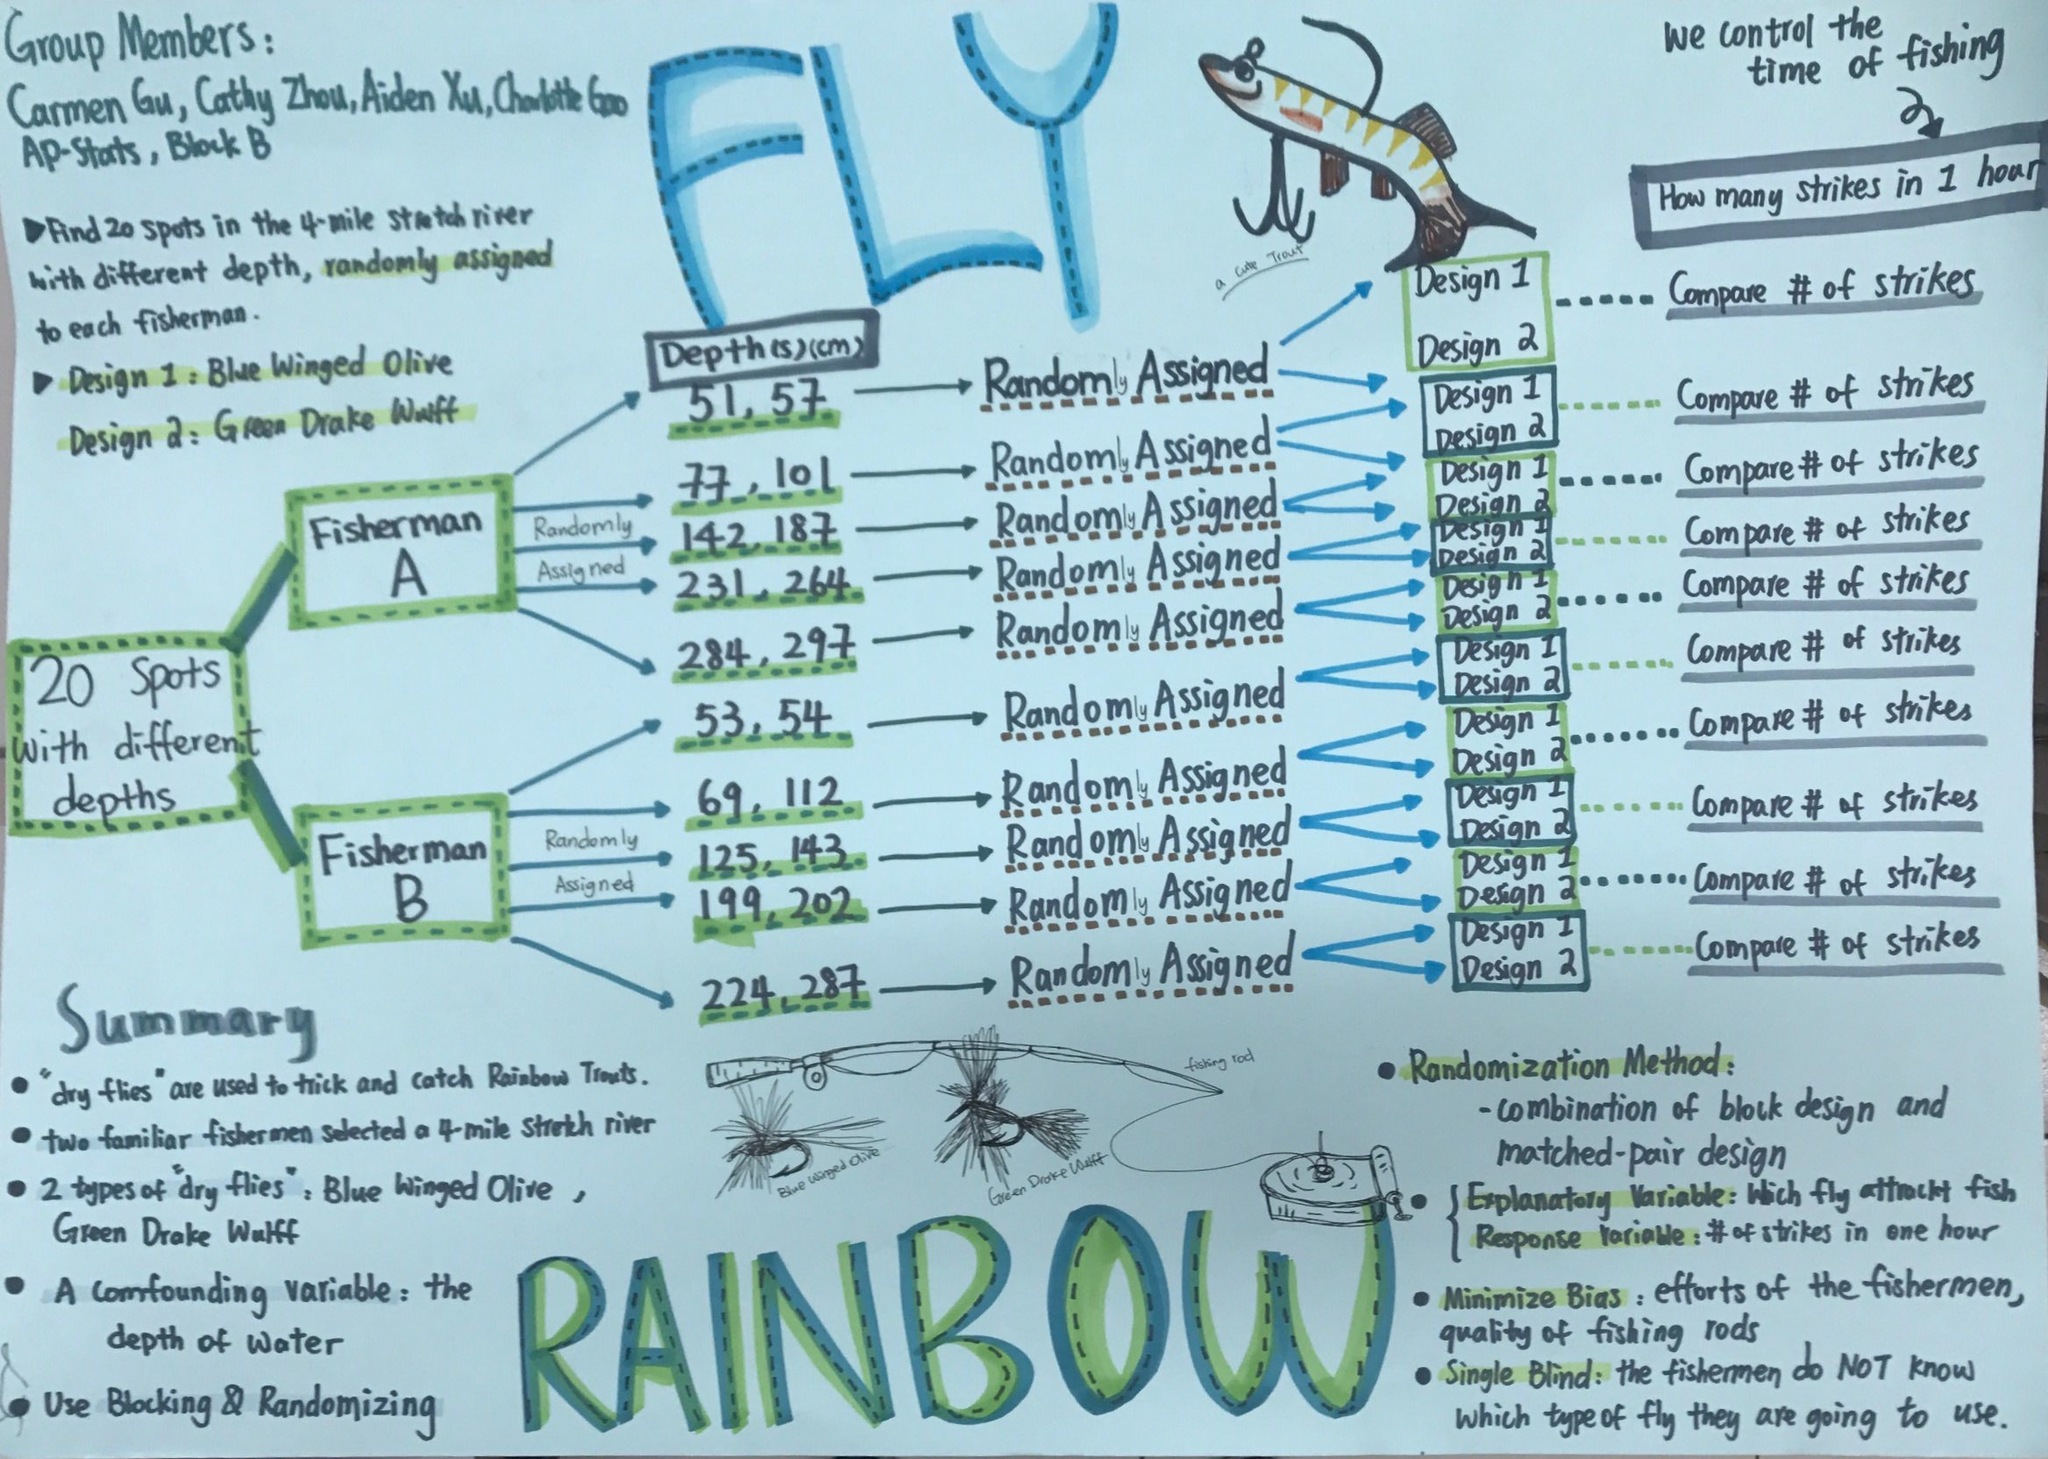 Group Members:
Carmen Gu, Cathy Zhou, Aiden Xu, Charlotte Gao
AP-Stats, Block B
FLY
We control the
time of fishing
How many strikes in 1 hour
a cute Trout
▶Find 20 spots in the 4-mile stretch river
with different depth, randomly assigned
to each fisherman.
▶ Design 1: Blue Winged Olive
Design 2: Green Drake Wulff
20 Spots
with different
depths
Fisherman
A
Randomly
Assigned
Fisherman
B
Randomly
Assigned
Depth(s)(cm)
51, 57 Randomly Assigned
77, 101 Randomly Assigned
142, 187 Randomly Assigned
231, 264 Randomly Assigned
284, 297 Randomly Assigned
53, 54 Randomly Assigned
69, 112 Randomly Assigned
125, 143 Randomly Assigned
199, 202 Randomly Assigned
224, 287 Randomly Assigned
Design 1
Design 2
Compare # of strikes
Design 1
Design 2
Compare # of strikes
Design 1
Design 2
Compare # of strikes
Design 1
Design 2
Compare # of strikes
Design 1
Design 2
Compare # of strikes
Design 1
Design 2
Compare # of strikes
Design 1
Design 2
Compare # of strikes
Design 1
Design 2
Compare # of strikes
Design 1
Design 2
Compare # of strikes
Design 1
Design 2
Compare # of strikes
Summary
• "dry flies" are used to trick and catch Rainbow Trouts.
• two familiar fishermen selected a 4-mile stretch river
• 2 types of "dry flies": Blue Winged Olive,
Green Drake Wulff
• A comfounding variable: the
depth of water
• Use Blocking & Randomizing
fishing rod
Blue Winged Olive
Green Drake Wulff
RAINBOW
• Randomization Method:
-combination of block design and
matched-pair design
• Explanatory Variable: Which fly attrackt fish
Response Variable: # of strikes in one hour
• Minimize Bias: efforts of the fishermen,
quality of fishing rods
• Single Blind: the fishermen do NOT know
which type of fly they are going to use.